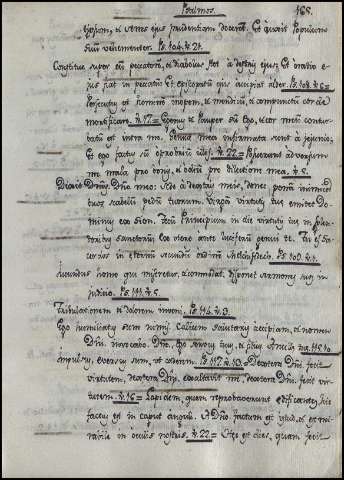 Psalmos. 168.
ipsum, et senes ejus prudentiam doceret. Et auxit Populum
suũ vehementer. Ps. 104. ℣. 21.
Constitue super eũ peccatorẽ, et diabolus stet à dextris ejus. Et oratio e-
jus fiat in peccatũ. Et Episcopatũ ejus accipiat alter. Ps. 108. ℣. 6 =
Persecutus est hominẽ inopem, et mendicũ, et compunctũ corde
mortificare. ℣. 17 = Egenus et Pauper sum Ego, et cor meũ contur-
batũ est intra me. Genua mea infirmata sunt à jejunio;
Et ego factus sũ oprobriũ illis. ℣. 22 = Posuerunt adversum
me mala pro bonis, et odiũ pro dilectione mea. ℣. 5.
Dixit Dns̃ Dño meo: Sede à dextris meis, donec ponã inimicos
tuos scabellũ pedũ tuorum. Virgã virtutis tuæ emittet Do-
minus ex Sion. Tecũ Principium in die virtutis tuæ in splen-
doribus Sanctorum, ex utero ante luciferũ genui te. Tu es Sa-
cerdos in eternũ secundũ ordinẽ Melchisedech. Ps. 109. ℣. 1.
Jucundus homo qui miseretur, et commodat, disponet sermones suos in
judicio. Ps. 111. ℣. 5.
Tribulationem et dolorem inveni. Ps. 114. ℣. 3.
Ego humiliatus sum nimis. Calicem salutaris accipiam, et nomen
Dñi. invocabo. Dñe. Ego servus tuus, et filius Ancillæ tuæ. 115. 10.
Impulsus, eversus sum, ut caderem. Ps. 117. ℣. 13 = Dextera Dñi. fecit
virtutem, dextera Dñi. exaltavit me, dextera Dñi. fecit vir-
tutem. ℣. 16 = Lapidem, quem reprobaverunt edificantes, hic
factus est in caput anguli. A Dño. factum est istud, et est mi-
rabile in oculis nostris. ℣. 22 = Hæc est dies, quam fecit